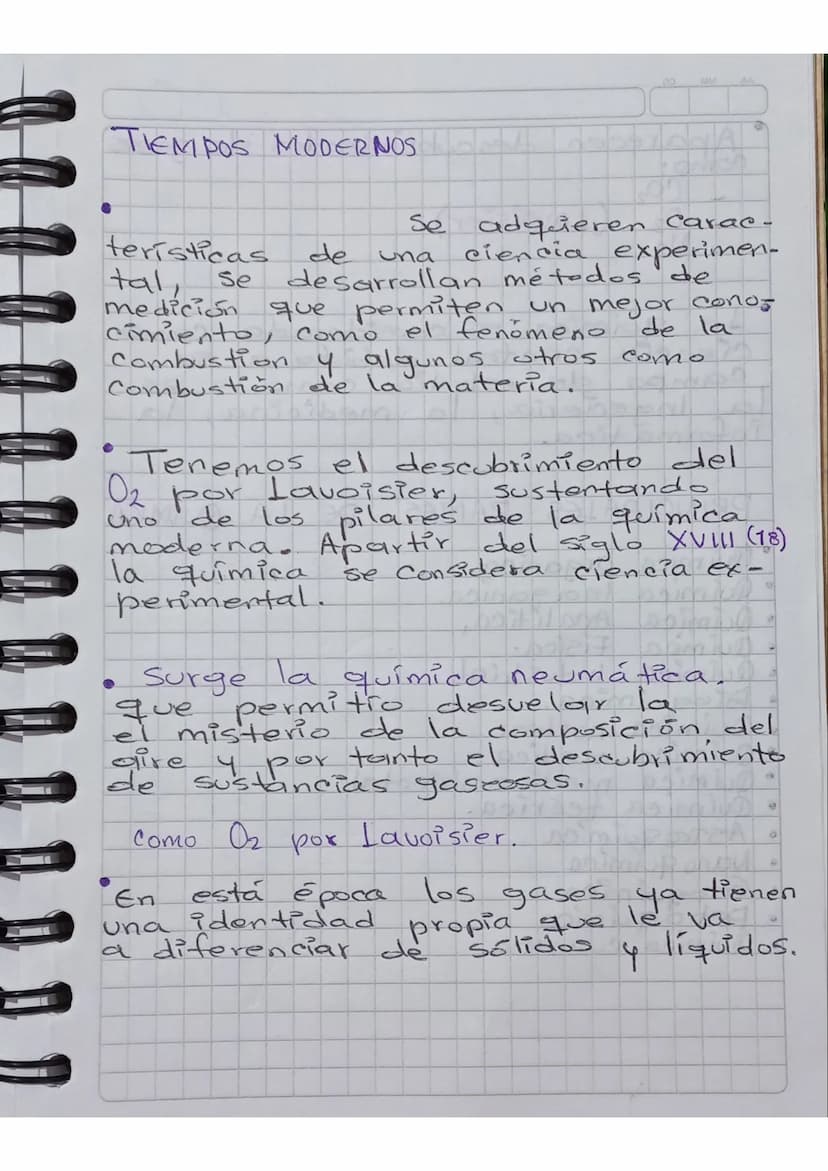 TIEMPOS MODERNOS
• Se adquieren carac-
terísticas de una ciencia experimen-
tal, se desarrollan métodos de
medición que permiten un mejor cono-
cimiento, como el fenómeno de la
combustion y algunos otros como
combustión de la materia.
• Tenemos el descubrimiento del
O2 por Lavoisier, sustentando
uno de los pilares de la química
moderna. Apartir del siglo XVIII (18)
la química se considera ciencia ex-
perimental.
• Surge la química neumática.
que permitio desvelar la
el misterio de la composición del
aire y por tanto el descubrimiento
de sustancias gaseosas.
como O2 por Lavoisier.
• En está época los gases ya tienen
una identidad propia que le va
a diferenciar de sólidos y líquidos.